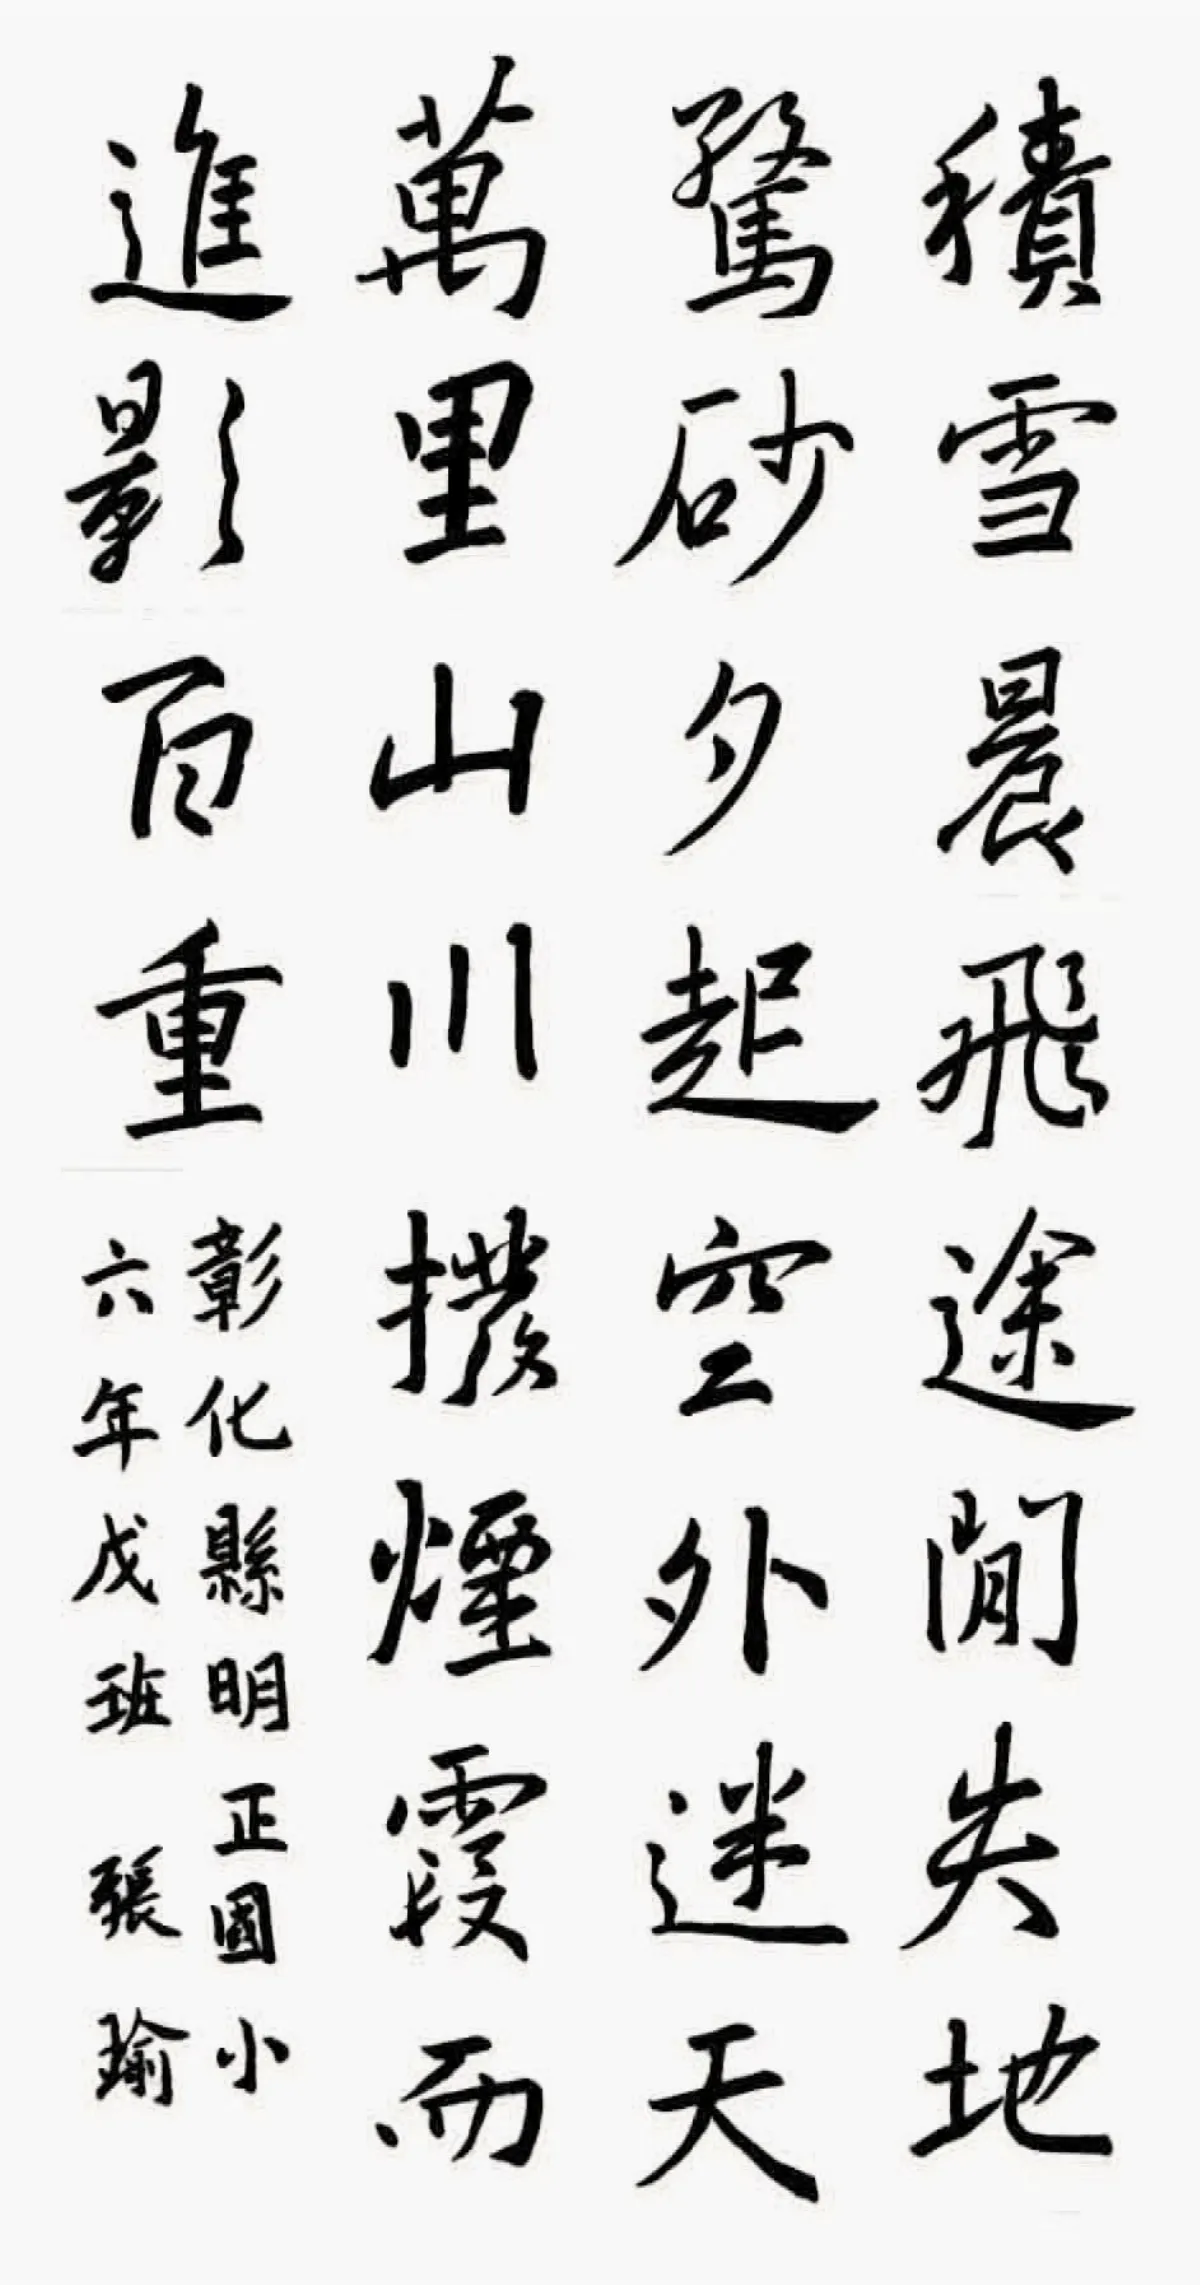 積雪晨飛途閒失地
驚砂夕起空外迷天
萬里山川撥煙霞而
進影百重
彰化縣明正國小
六年戊班 張瑜